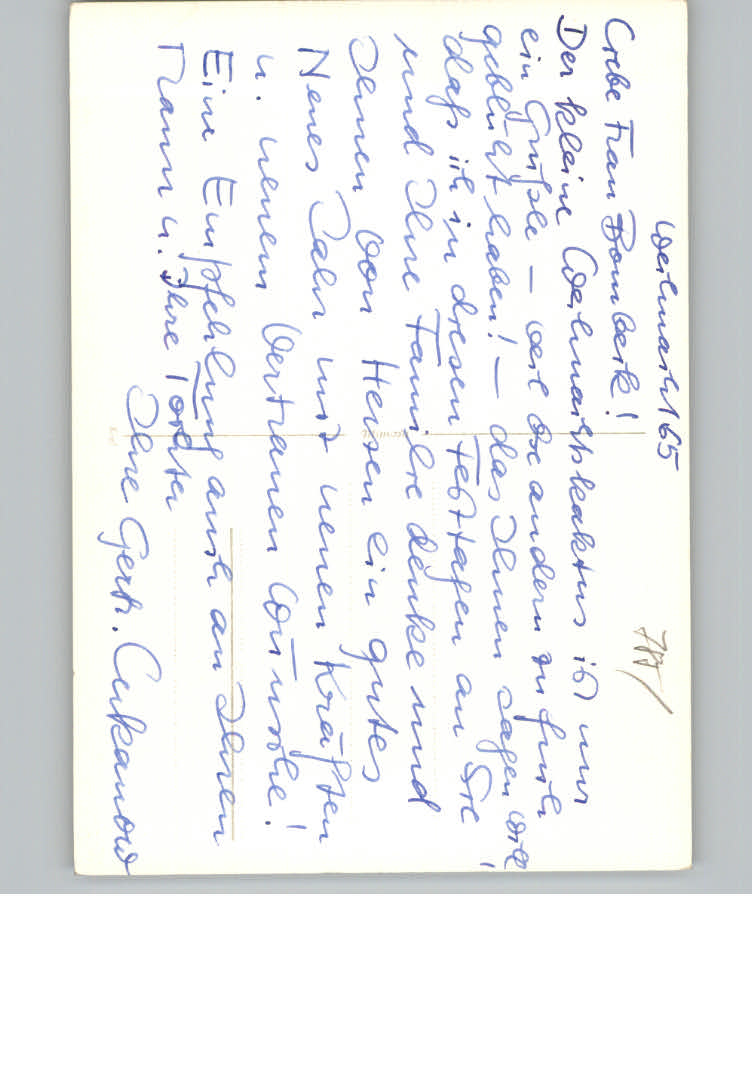 Weihnacht 65
Liebe Frau Bombeck!
Der kleine Weihnachtskaktus ist nur
ein Grüßle – weil die andern zu früh
geblüht haben! – das Ihnen sagen will,
daß ich in diesen Festtagen an Sie
und Ihre Familie denke und
Ihnen von Herzen ein gutes
Neues Jahr mit neuen Kräften
u. neuem Vertrauen wünsche!
Eine Empfehlung auch an Ihren
Mann u. Ihre Tochter
Ihre Gertr. Lukanow